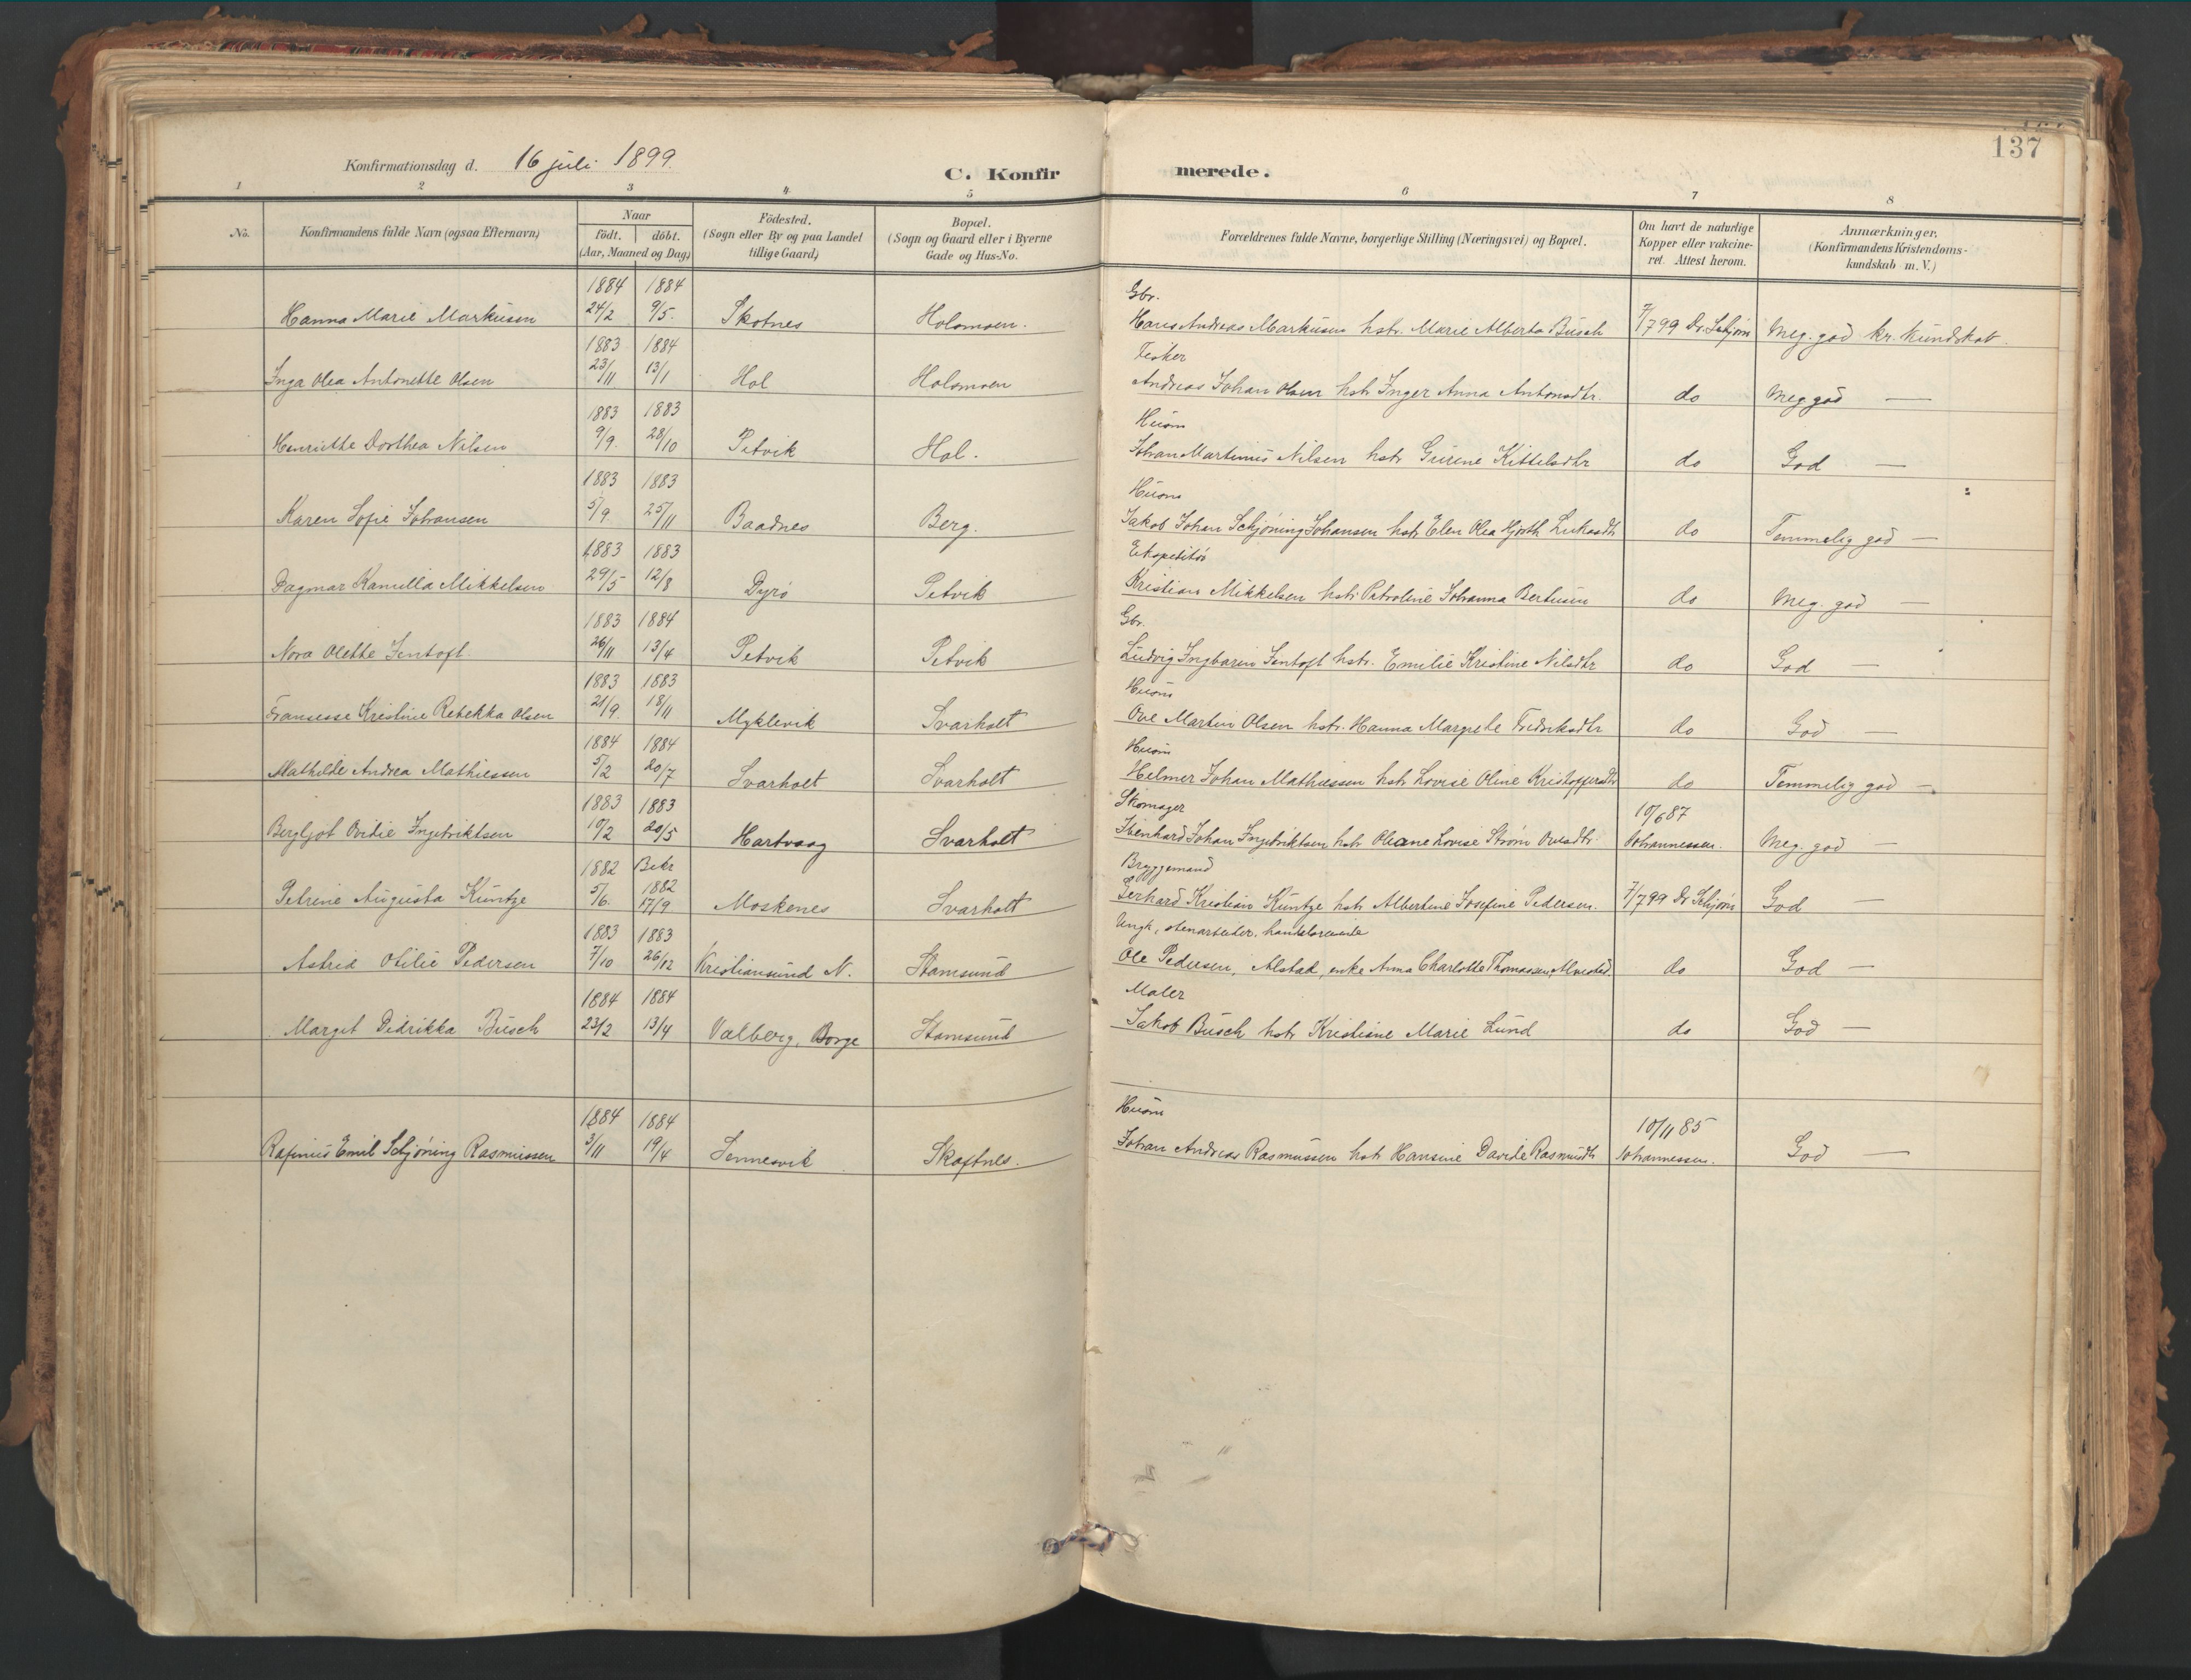 137
Konfirmationsdag d. 16 juli 1899.
C. Konfirmerede.
1 2 3 4 5 6 7 8
No.
Konfirmandens fulde Navn (ogsaa Efternavn)
Naar
født. døbt.
(Aar, Maaned og Dag)
Födested.
(Sogn eller By og paa Landet
tillige Gaard)
Bopæl.
(Sogn og Gaard eller i Byerne
Gade og Hus-No.
Forældrenes fulde Navne, borgerlige Stilling (Næringsvei) og Bopæl.
Om havt de naturlige
Kopper eller vakcine-
ret. Attest herom.
Anmærkninger.
(Konfirmandens Kristendoms-
kundskab m. V.)
1884 1884 Gbr.
Hanna Marie Markusen 24/2 9/5. Skotnes Holsmoen. Hans Andreas Markusen hstr. Marie Alberta Busch 7/7 99 Dr. Schjøn Meg. god kr. kundskab.
1883 1884 Fisker
Inga Olea Antonette Olsen 23/11 13/1 Hol Holsmoen Andreas Johan Olsen hstr Inger Anna Antonsdtr. do Meg god —
1883 1883 Husm
Henriette Dorthea Nilsen 9/9. 28/10 Petvik Hol. Johan Martinus Nilsen hstr Gurine Kittelsdtr do God —
1883 1883 Husm
Karen Sofie Johansen 5/9. 25/11 Baadnes Berg. Jakob Johan Schjøning Johansen hstr Elen Olea Hjorth Lukasdtr do Temmelig god —
1883 1883 Ekspeditør
Dagmar Kamilla Mikkelsen 29/5 12/8 Dyrø Petvik Kristian Mikkelsen hstr Petroline Johanna Bertusen do Meg. god —
1883 1884 Gbr.
Nora Olette Jentoft 26/11 13/4 Petvik Petvik Ludvig Ingbario Jentoft hstr. Emilie Kristine Nilsdtr do God —
1883 1883 Husm
Fransesse Kristine Rebekka Olsen 21/9. 18/11 Myklevik Svarholt Ove Martin Olsen hstr. Hanna Margrete Fredriksdtr do God —
1884 1884 Husm
Mathilde Andrea Mathiessen 5/2 20/7 Svarholt Svarholt Helmer Johan Mathiessen hstr Lovise Oline Kristoffersdtr do Temmelig god —
1883 1883 Skomager 10/6 87
Bergljot Ovidie Ingebriktsen 10/2 20/5 Hartvaag Svarholt Johan Ingebriktsen hstr Oleane Lovise Strøm Ovesdtr. Johannessen. Meg. god —
1882 Bekr 1882 Bryggemand
Petrine Augusta Kuntze 5/6. 17/9 Moskenes Svarholt Gerhard Kristian Kuntze hstr Albertine Josefine Pedersen. 7/7 99 Dr Schjøn God —
1883 1883 Ungk., stenarbeider.
Astrid Otilie Pedersen 7/10 26/12 Kristiansund N. Stamsund Ole Pedersen, Alstad, enke Anna Charlotte Thomassen, do God —
1884 1884 Maler
Margit Didrikka Busch 23/2 13/4 Valberg, Borge Stamsund Jakob Busch hstr Kristiane Marie Lund do God —
1884 1884 Husm 10/11 85
Rasmus Emil Schjøning Rasmussen 3/11 19/4 Sennesvik Skaftnes. Johan Andreas Rasmussen hstr Hansine Davide Rasmusdtr Johannessen. God —